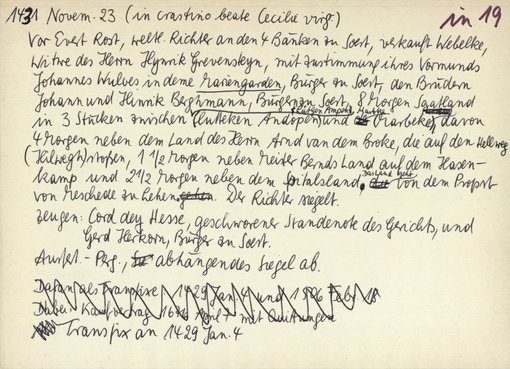 1431 Novem. 23 (in crastino beate Cecilie virg.)
in 19
Vor Evert Rost, weltl. Richter an den 4 Bänken zu Soest, verkauft Webelke,
Witwe des Herrn Hynrik Grevensteyn, mit Zustimmung ihres Vormunds
Johannes Wulves in deme Mariengarden, Bürger zu Soest, den Brüdern
Johann und Hinrik Berghmann, Bürger zu Soest, 8 Morgen Saatland
in 3 Stücken zwischen und Marbeke, davon
4 Morgen neben dem Land des Herrn Arnd van dem Broke, die auf den Hellweg
(Helwegh) stoßen, 1 1/2 Morgen neben Meister Bernds Land auf dem Hasen-
kamp und 2 1/2 Morgen neben dem Spitalsland, von dem Propst
von Meschede zu Lehen. Der Richter siegelt.
Zeugen: Cord dey Hesse, geschworener Standenote des Gerichts, und
Gerd Herkorn, Bürger zu Soest.
Ausf. - Perg., abhängendes Siegel ab.
Daran als Transfixe 1429 Jan. 4 und 1506 Febr. 18
Dabei Kaufvertrag April 7 mit Quittungen
Transfix an 1429 Jan. 4